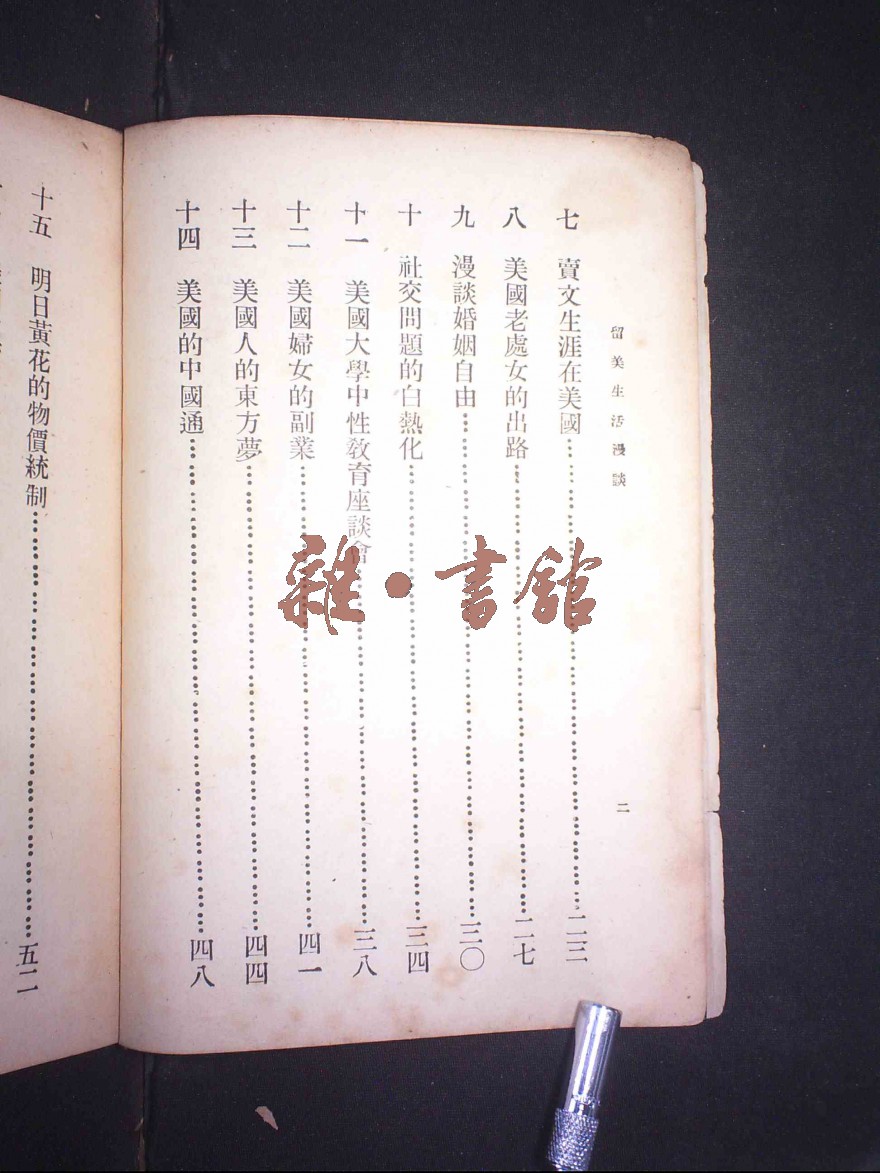 留美生活漫談
二
七 賣文生涯在美國……二三
八 美國老處女的出路……二七
九 漫談婚姻自由……三〇
十 社交問題的白熱化……三四
十一 美國大學中性教育座談會……三八
十二 美國婦女的副業……四一
十三 美國人的東方夢……四四
十四 美國的中國通……四八
十五 明日黃花的物價統制……五二
雜·書館